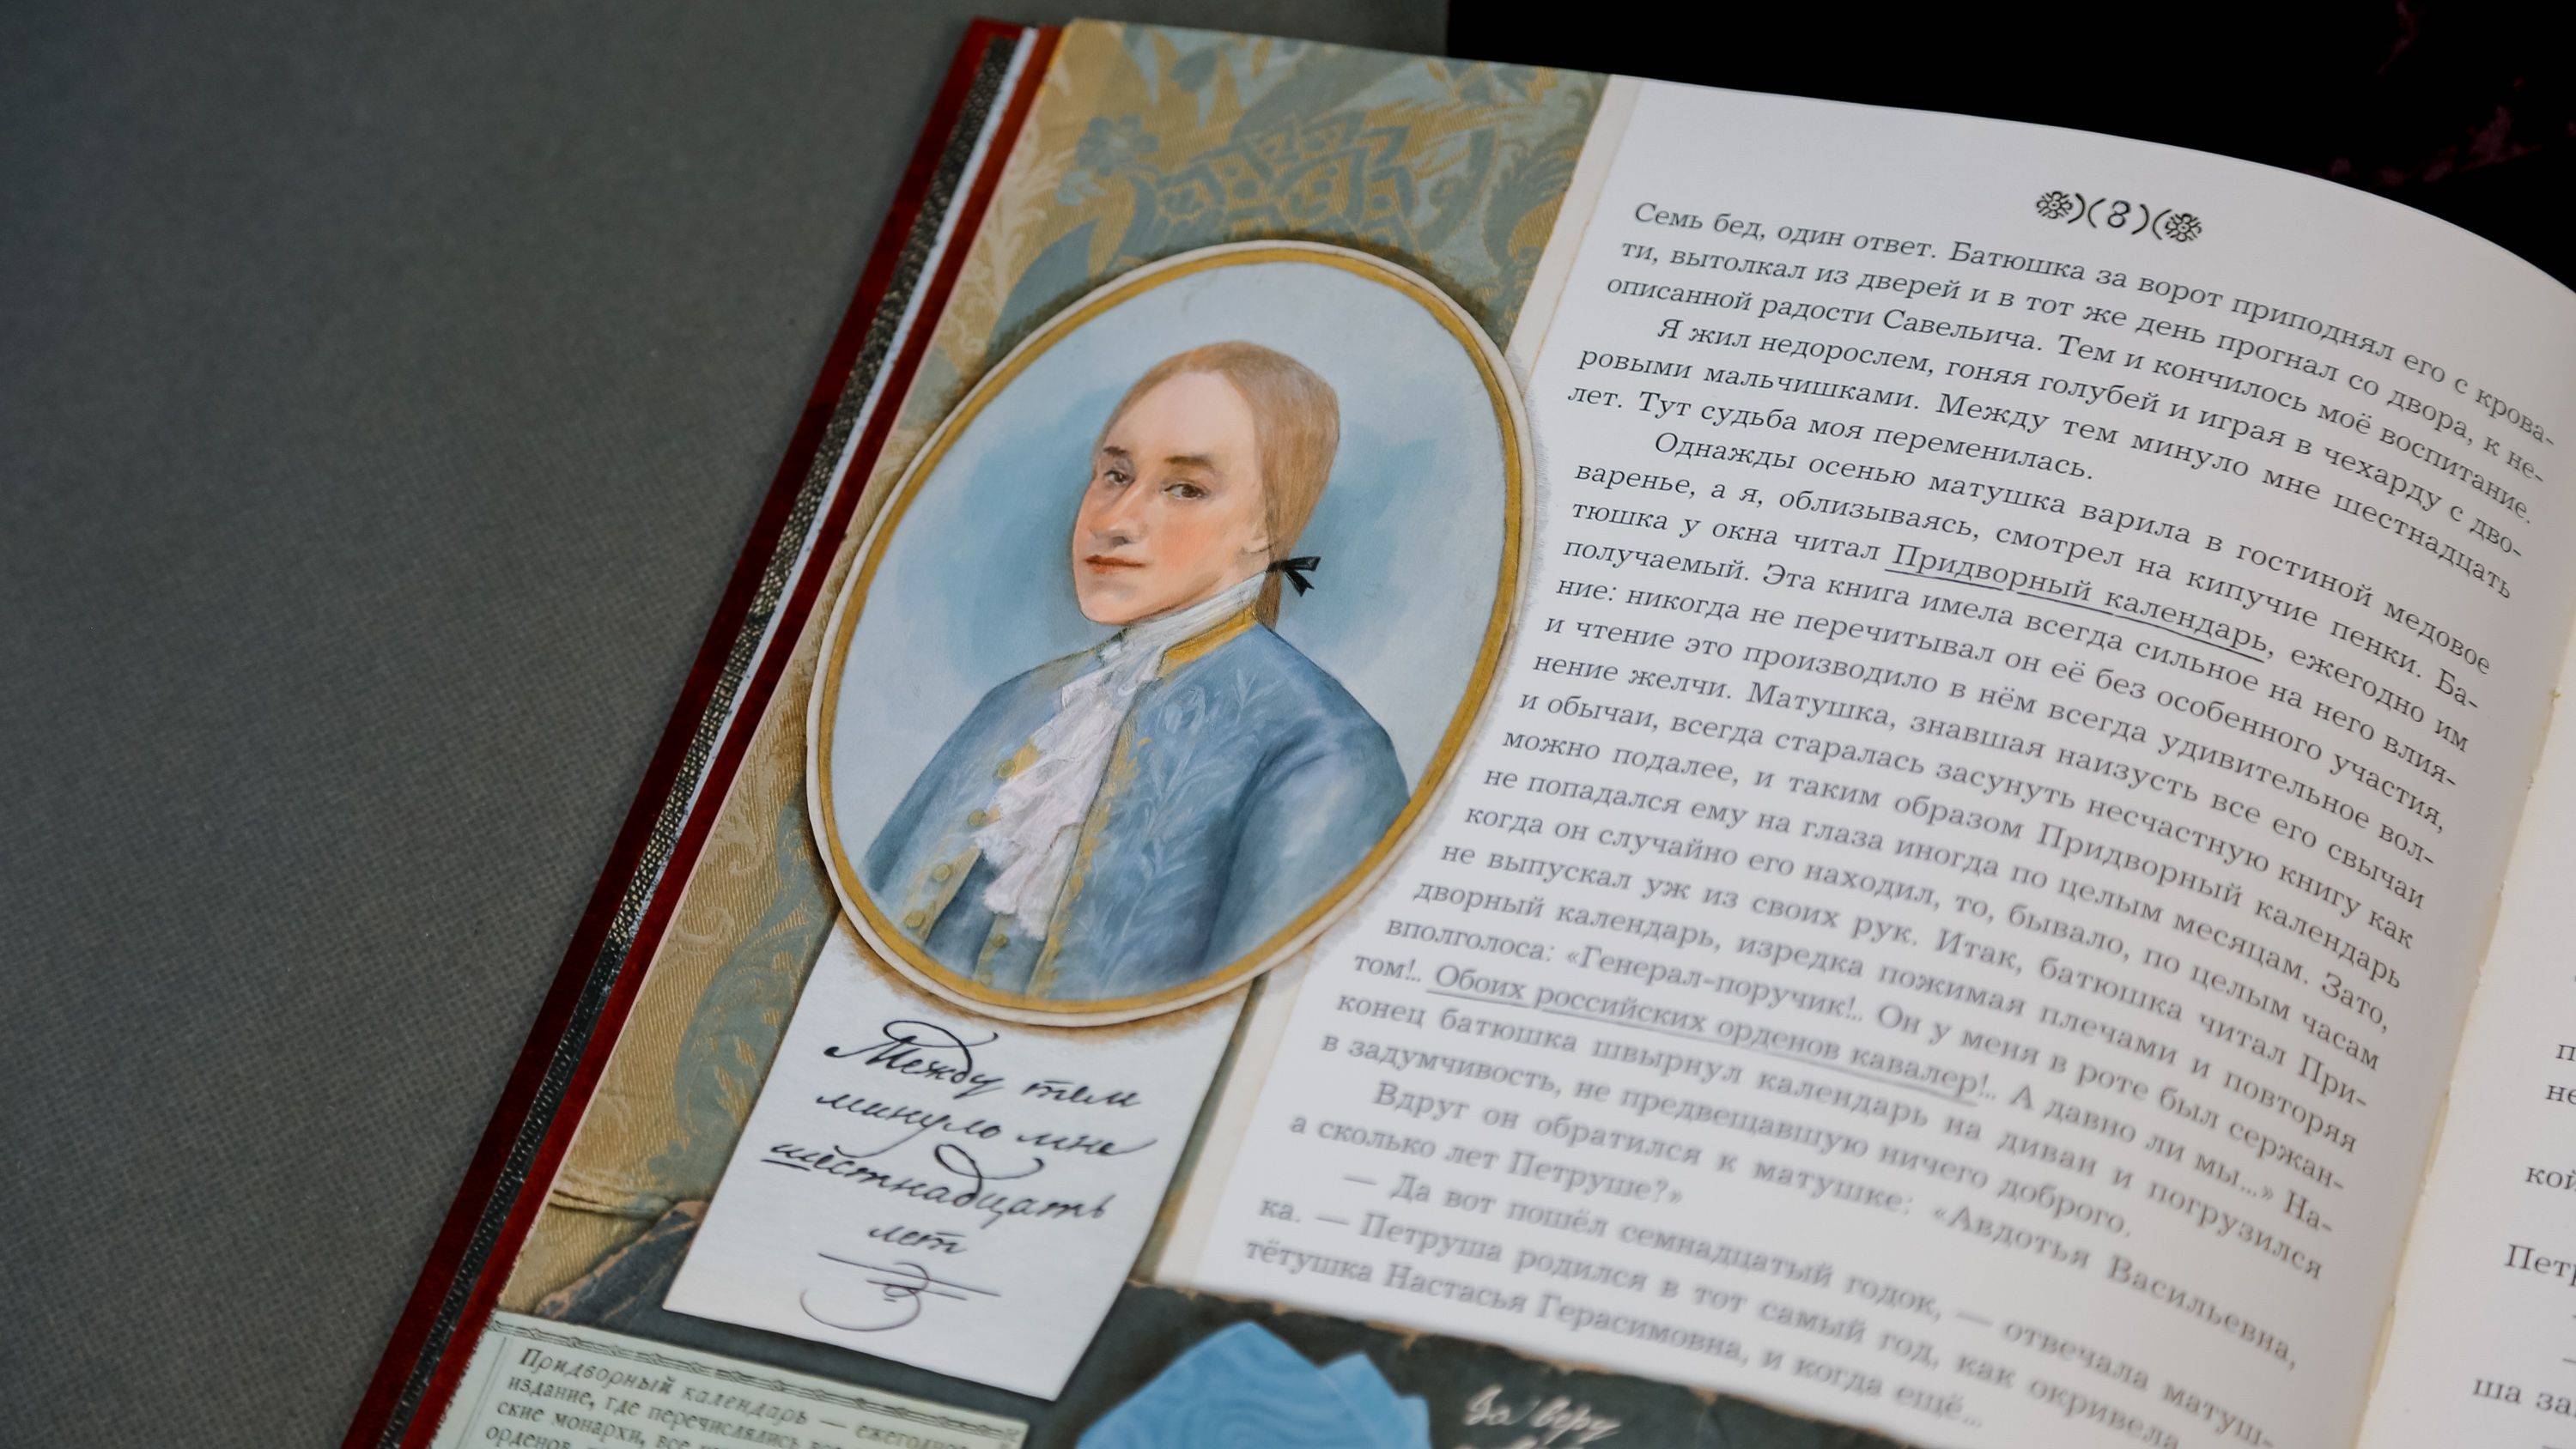 8
Семь бед, один ответ. Батюшка за ворот приподнял его с крова-
ти, вытолкал из дверей и в тот же день прогнал со двора, к не-
описанной радости Савельича. Тем и кончилось моё воспитание.
Я жил недорослем, гоняя голубей и играя в чехарду с дво-
ровыми мальчишками. Между тем минуло мне шестнадцать
лет. Тут судьба моя переменилась.
Однажды осенью матушка варила в гостиной медовое
варенье, а я, облизываясь, смотрел на кипучие пенки. Ба-
тюшка у окна читал Придворный календарь, ежегодно им
получаемый. Эта книга имела всегда сильное на него влия-
ние: никогда не перечитывал он её без особенного участия,
и чтение это производило в нём всегда удивительное вол-
нение желчи. Матушка, знавшая наизусть все его свычаи
и обычаи, всегда старалась засунуть несчастную книгу как
можно подалее, и таким образом Придворный календарь
не попадался ему на глаза иногда по целым месяцам. Зато,
когда он случайно его находил, то, бывало, по целым часам
не выпускал уж из своих рук. Итак, батюшка читал При-
дворный календарь, изредка пожимая плечами и повторяя
вполголоса: «Генерал-поручик!.. Он у меня в роте был сержан-
том!.. Обоих российских орденов кавалер!.. А давно ли мы...» На-
конец батюшка швырнул календарь на диван и погрузился
в задумчивость, не предвещавшую ничего доброго.
Вдруг он обратился к матушке: «Авдотья Васильевна,
а сколько лет Петруше?»
— Да вот пошёл семнадцатый годок, — отвечала матуш-
ка. — Петруша родился в тот самый год, как окривела
тётушка Настасья Герасимовна, и когда ещё...
Между тем
минуло мне
шестнадцать
лет
Придворный календарь — ежегодное
издание, где перечислялись
ские монархи, все
орденов
кой
Пет
ша за